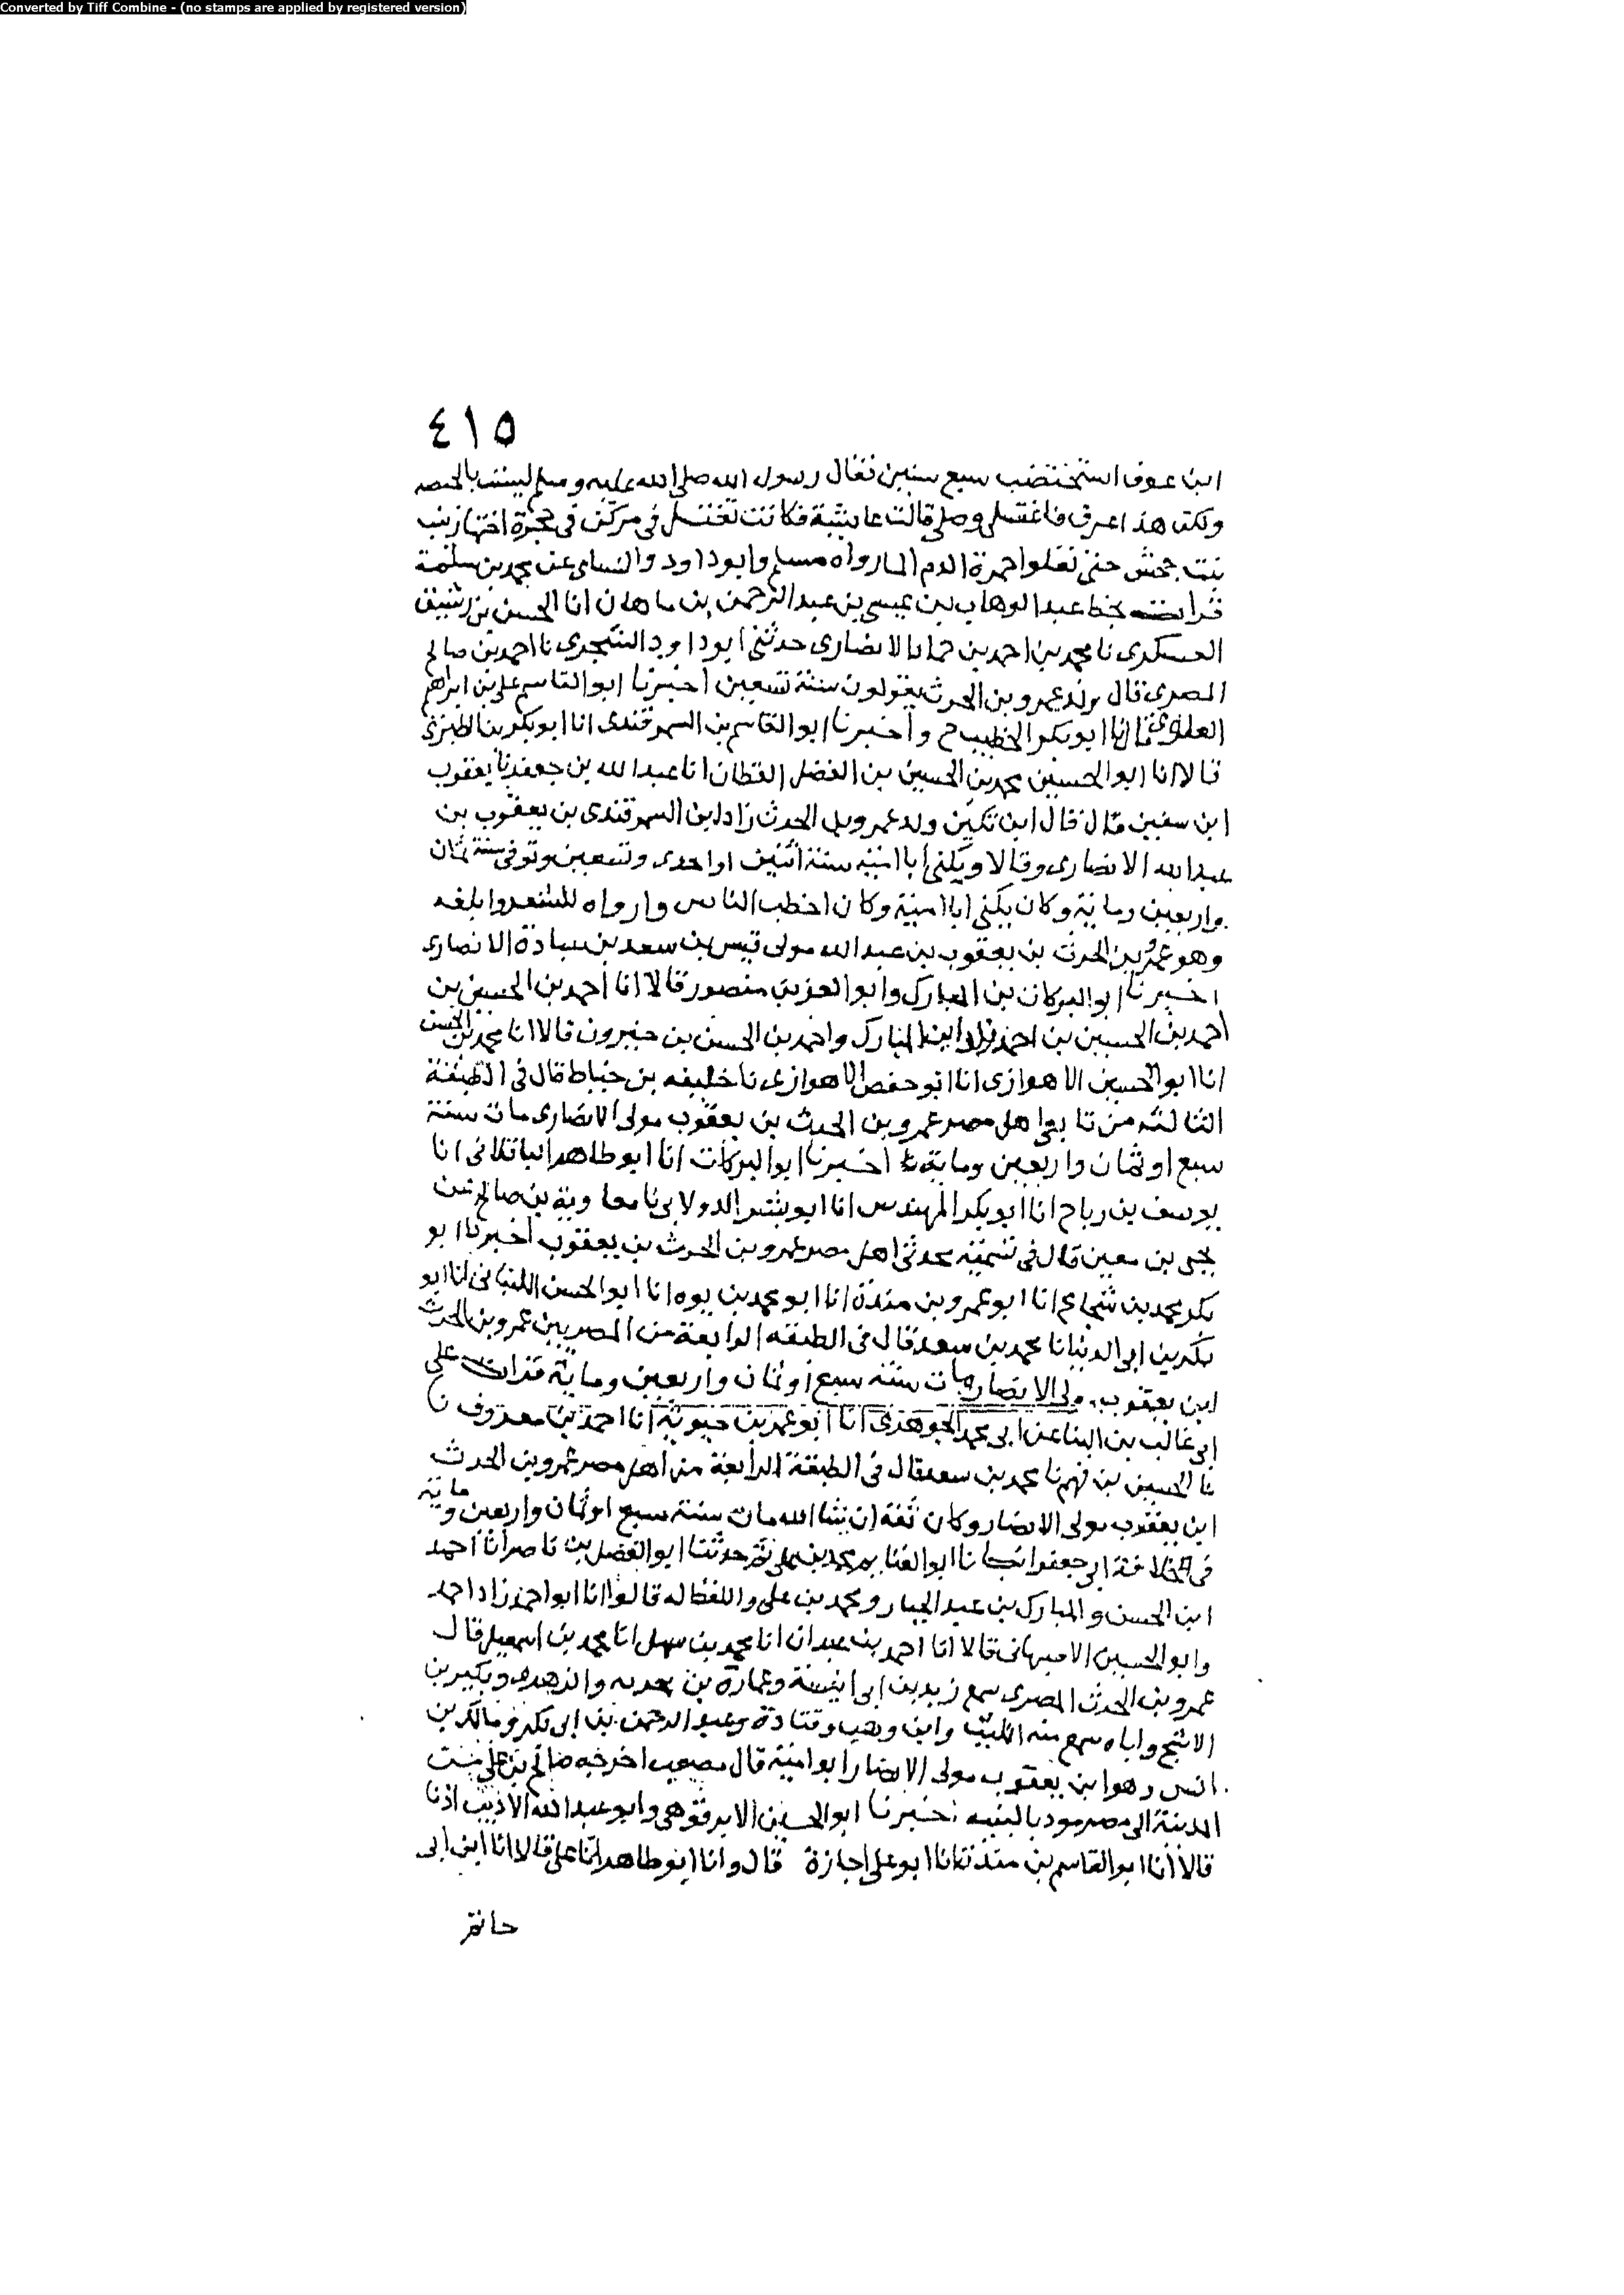 Converted by Tiff Combine - (no stamps are applied by registered version)
٤١٥
ابن عوف استحتضب سبع سنين فقال رسول الله صلى الله عليه وسلم ليست بالحيضه
ولكن هذا عرق فاغتسلي وصلي قالت عايشة فكانت تغتسل في مركن في حجرة اختها زينب
بنت جحش حتى تعلوا حمرة الدم الما رواه مسلم وابو داود والنساى عن محمد بن سلمة
قرات بخط عبد الوهاب بن عيسى بن عبد الرحمن بن ماهان انا الحسن بن رشيق
العسكرى نا محمد بن احمد بن حماد الانصارى حدثني ابو داود السجزى نا احمد بن صالح
المصرى قال ولد عمرو بن الحرث يقولون سنة تسعين اخبرنا ابو القاسم على بن ابراهيم
العلوى قال انا ابو بكر الخطيب ح واخبرنا ابو القاسم بن السمرقندى انا ابو بكر بن الطبرى
قالا انا ابو الحسين محمد بن الحسين بن الفضل القطان انا عبد الله بن جعفر نا يعقوب
ابن سفين قال قال ابن بكير ولد عمرو بن الحرث زاد ابن السمرقندى بن يعقوب بن
عبد الله الانصارى وقالا ويكنى ابا امية سنة اثنين او احدى وتسعين وتوفى سنة ثمان
واربعين وماية وكان يكنى ابا امية وكان اخطب الناس وارواه للشعر وابلغه
وهو عمرو بن الحرث بن يعقوب بن عبد الله مولى قيس بن سعد بن عبادة الانصارى
اخبرنا ابو البركات بن المبارك وابو العز بن منصور قالا انا احمد بن الحسين بن
احمد بن الحسين بن احمد زاد ابن المبارك واحمد بن الحسن بن خيرون قالا انا محمد بن الحسن
انا ابو الحسين الاهوازى انا ابو حفص الاهوازى نا خليفه بن خياط قال فى الطبقة
الثالثه من تابعى اهل مصر عمرو بن الحرث بن يعقوب مولى الانصارى مات سنة
سبع او ثمان واربعين وماية اخبرنا ابو البركات انا ابو طاهر الباقلانى انا
يوسف بن رباح انا ابو بكر المهندس انا ابو بشر الدولابى نا معاوية بن صالح عن
يحيى بن معين قال فى تسمية محدثى اهل مصر عمرو بن الحرث بن يعقوب اخبرنا ابو
بكر محمد بن شجاع انا ابو عمرو بن مندة انا ابو محمد بن يوه انا ابو الحسن اللنبانى انا ابو
بكر بن ابى الدنيا نا محمد بن سعد قال فى الطبقه الرابعة من المصريين عمرو بن الحرث
ابن يعقوب مولى الانصار مات سنة سبع او ثمان واربعين وماية قرات على
ابى غالب بن البنا عن ابى محمد الجوهرى انا ابو عمر بن حيوية انا احمد بن معروف نا
نا الحسين بن فهم نا محمد بن سعد قال فى الطبقة الرابعة من اهل مصر عمرو بن الحرث
ابن يعقوب مولى الانصار وكان ثقة ان شا الله مات سنة سبع او ثمان واربعين وماية
فى خلافة ابى جعفر انا ابو الغنايم محمد بن على ثم حدثنا ابو الفضل بن ناصر انا احمد
ابن الحسن والمبارك بن عبد الجبار ومحمد بن على واللفظ له قالوا انا ابو احمد زاد احمد
وابو الحسين الاصبهانى قالا انا احمد بن عبدان انا محمد بن سهل انا محمد بن اسمعيل قال
عمرو بن الحرث المصرى سمع زيد بن ابى انيسة وعمارة بن غزيه والزهرى وبكير بن
الاشج واباه سمع منه الليث وابن وهب وقتادة وعبد الرحمن بن ابى بكر ومالك بن
انس وهو ابن يعقوب مولى الانصار ابو امية قال مصعب اخرجه صالح بن على من
المدينة الى مصر مودبا لبنيه اخبرنا ابو الحسين الابرقوهى وابو عبد الله الاديب اذنا
قالا انا ابو القاسم بن مندة انا ابو على اجازة قال وانا ابو طاهر انا على قالا انا ابن ابى
حاتم